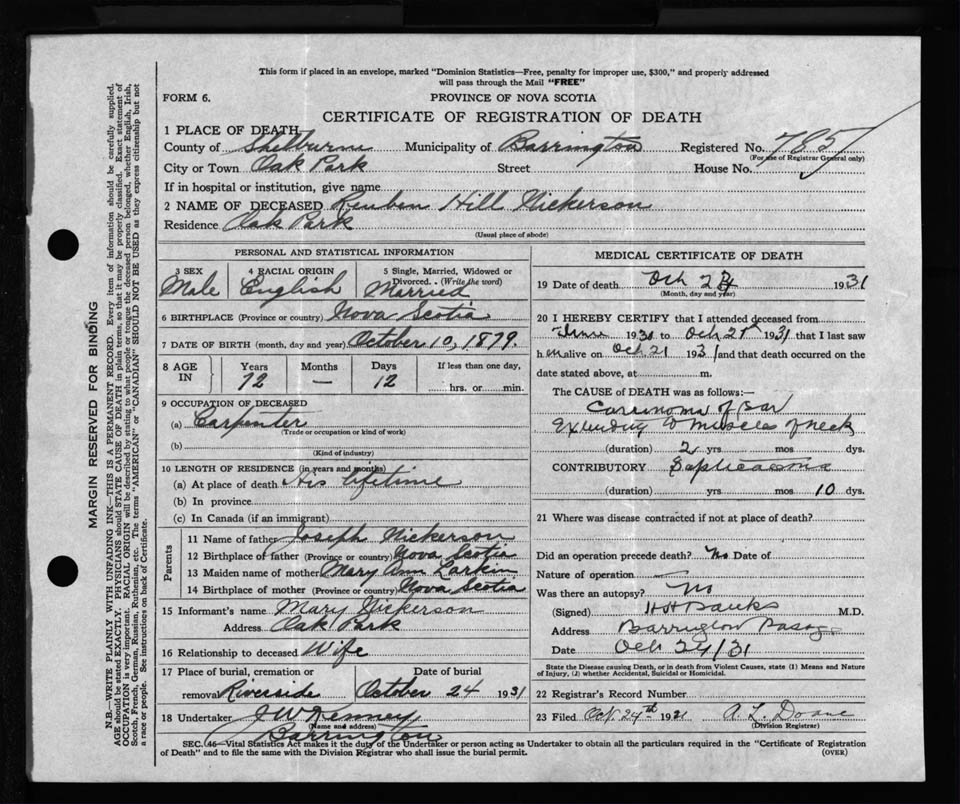 This form if placed in an envelope, marked "Dominion Statistics—Free, penalty for improper use, $300," and properly addressed
will pass through the Mail "FREE"
FORM 6.
PROVINCE OF NOVA SCOTIA
CERTIFICATE OF REGISTRATION OF DEATH
1 PLACE OF DEATH
County of Shelburne Municipality of Barrington Registered No. 7857
(For use of Registrar General only)
City or Town Oak Park Street House No.
If in hospital or institution, give name
2 NAME OF DECEASED Reuben Hill Nickerson
Residence Oak Park
(Usual place of abode)
PERSONAL AND STATISTICAL INFORMATION
3 SEX 4 RACIAL ORIGIN 5 Single, Married, Widowed or
Divorced. (Write the word)
Male English Married
6 BIRTHPLACE (Province or country) Nova Scotia
7 DATE OF BIRTH (month, day and year) October 10, 1879.
8 AGE IN Years Months Days If less than one day,
12 — 12 hrs. or min.
9 OCCUPATION OF DECEASED
(a) Carpenter
(Trade or occupation or kind of work)
(b)
(Kind of industry)
10 LENGTH OF RESIDENCE (in years and months)
(a) At place of death His lifetime
(b) In province
(c) In Canada (if an immigrant)
Parents
11 Name of father Joseph Nickerson
12 Birthplace of father (Province or country) Nova Scotia
13 Maiden name of mother Mary Ann Larkin
14 Birthplace of mother (Province or country) Nova Scotia
15 Informant's name Mary Nickerson
Address Oak Park
16 Relationship to deceased Wife
17 Place of burial, cremation or Date of burial
removal Riverside October 24 1931
18 Undertaker J W Kenney
(Name and address)
Barrington
MEDICAL CERTIFICATE OF DEATH
19 Date of death Oct 1931
(Month, day and year)
20 I HEREBY CERTIFY that I attended deceased from
June 1930 to Oct 21st 1931 that I last saw
h im alive on Oct 21 1931 and that death occurred on the
date stated above, at m.
The CAUSE OF DEATH was as follows:—
Carcinoma of Ear
Extending to muscles of neck
(duration) 2 yrs mos dys.
CONTRIBUTORY Septicaemia
(duration) yrs mos 10 dys.
21 Where was disease contracted if not at place of death?
Did an operation precede death? No Date of
Nature of operation —
Was there an autopsy? No
(Signed) H H Banks M.D.
Address Barrington Passage
Date Oct 24/31
State the Disease causing Death, or in death from Violent Causes, state (1) Means and Nature
of Injury, (2) whether Accidental, Suicidal or Homicidal.
22 Registrar's Record Number
23 Filed Oct. 24th 1931 A. L. Doane
(Division Registrar)
SEC. 46—Vital Statistics Act makes it the duty of the Undertaker or person acting as Undertaker to obtain all the particulars required in the "Certificate of Registration
of Death" and to file the same with the Division Registrar who shall issue the burial permit. (OVER)
MARGIN RESERVED FOR BINDING
N.B.—WRITE PLAINLY WITH UNFADING INK—THIS IS A PERMANENT RECORD. Every item of information should be carefully supplied.
AGE should be stated EXACTLY. PHYSICIANS should STATE CAUSE OF DEATH in plain terms, so that it may be properly classified. Exact statement of
OCCUPATION is very important. RACIAL ORIGIN will be described by stating to what people or tongue the deceased person belonged, whether English, Irish,
Scotch, French, German, Russian, Ruthenian, etc. The terms "AMERICAN" or "CANADIAN" SHOULD NOT BE USED as they express citizenship but not
a race or people. See instructions on back of Certificate.